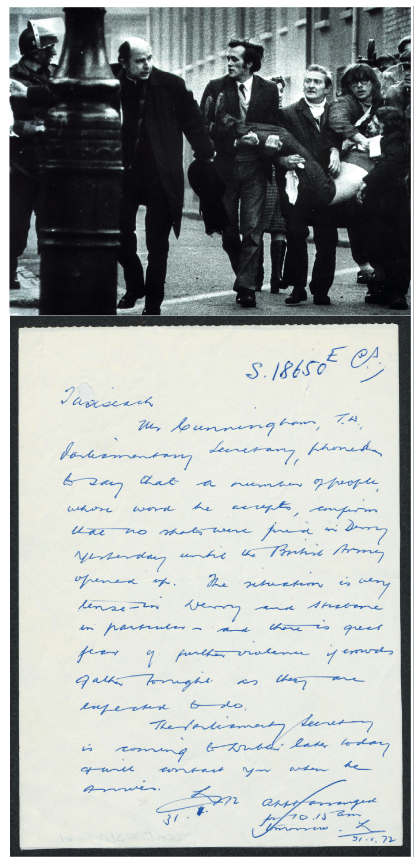 S. 18650 E
Taoiseach
Mr Cunningham, T.D.,
Parliamentary Secretary, phoned
to say that a number of people,
whose word he accepts, confirm
that no shots were fired in Derry
yesterday until the British Army
opened up. The situation is very
tense - in Derry and Strabane
in particular - and there is great
fear of further violence if crowds
gather tonight as they are
expected to do.
The Parliamentary Secretary
is coming to Dublin later today
& will contact you when he
arrives.
Appt arranged
31.1.
for 10.15 am
tomorrow.
31.1.72